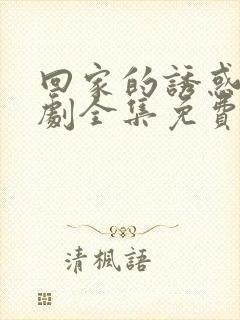 回家的誘惑
劇全集免費
清楓語